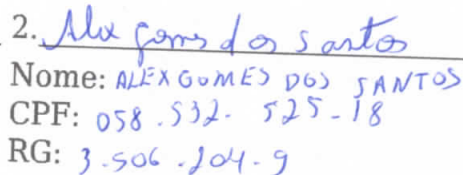 2. Alex Gomes dos Santos
Nome: ALEX GOMES DOS SANTOS
CPF: 058.532.525-18
RG: 3.506.204-9